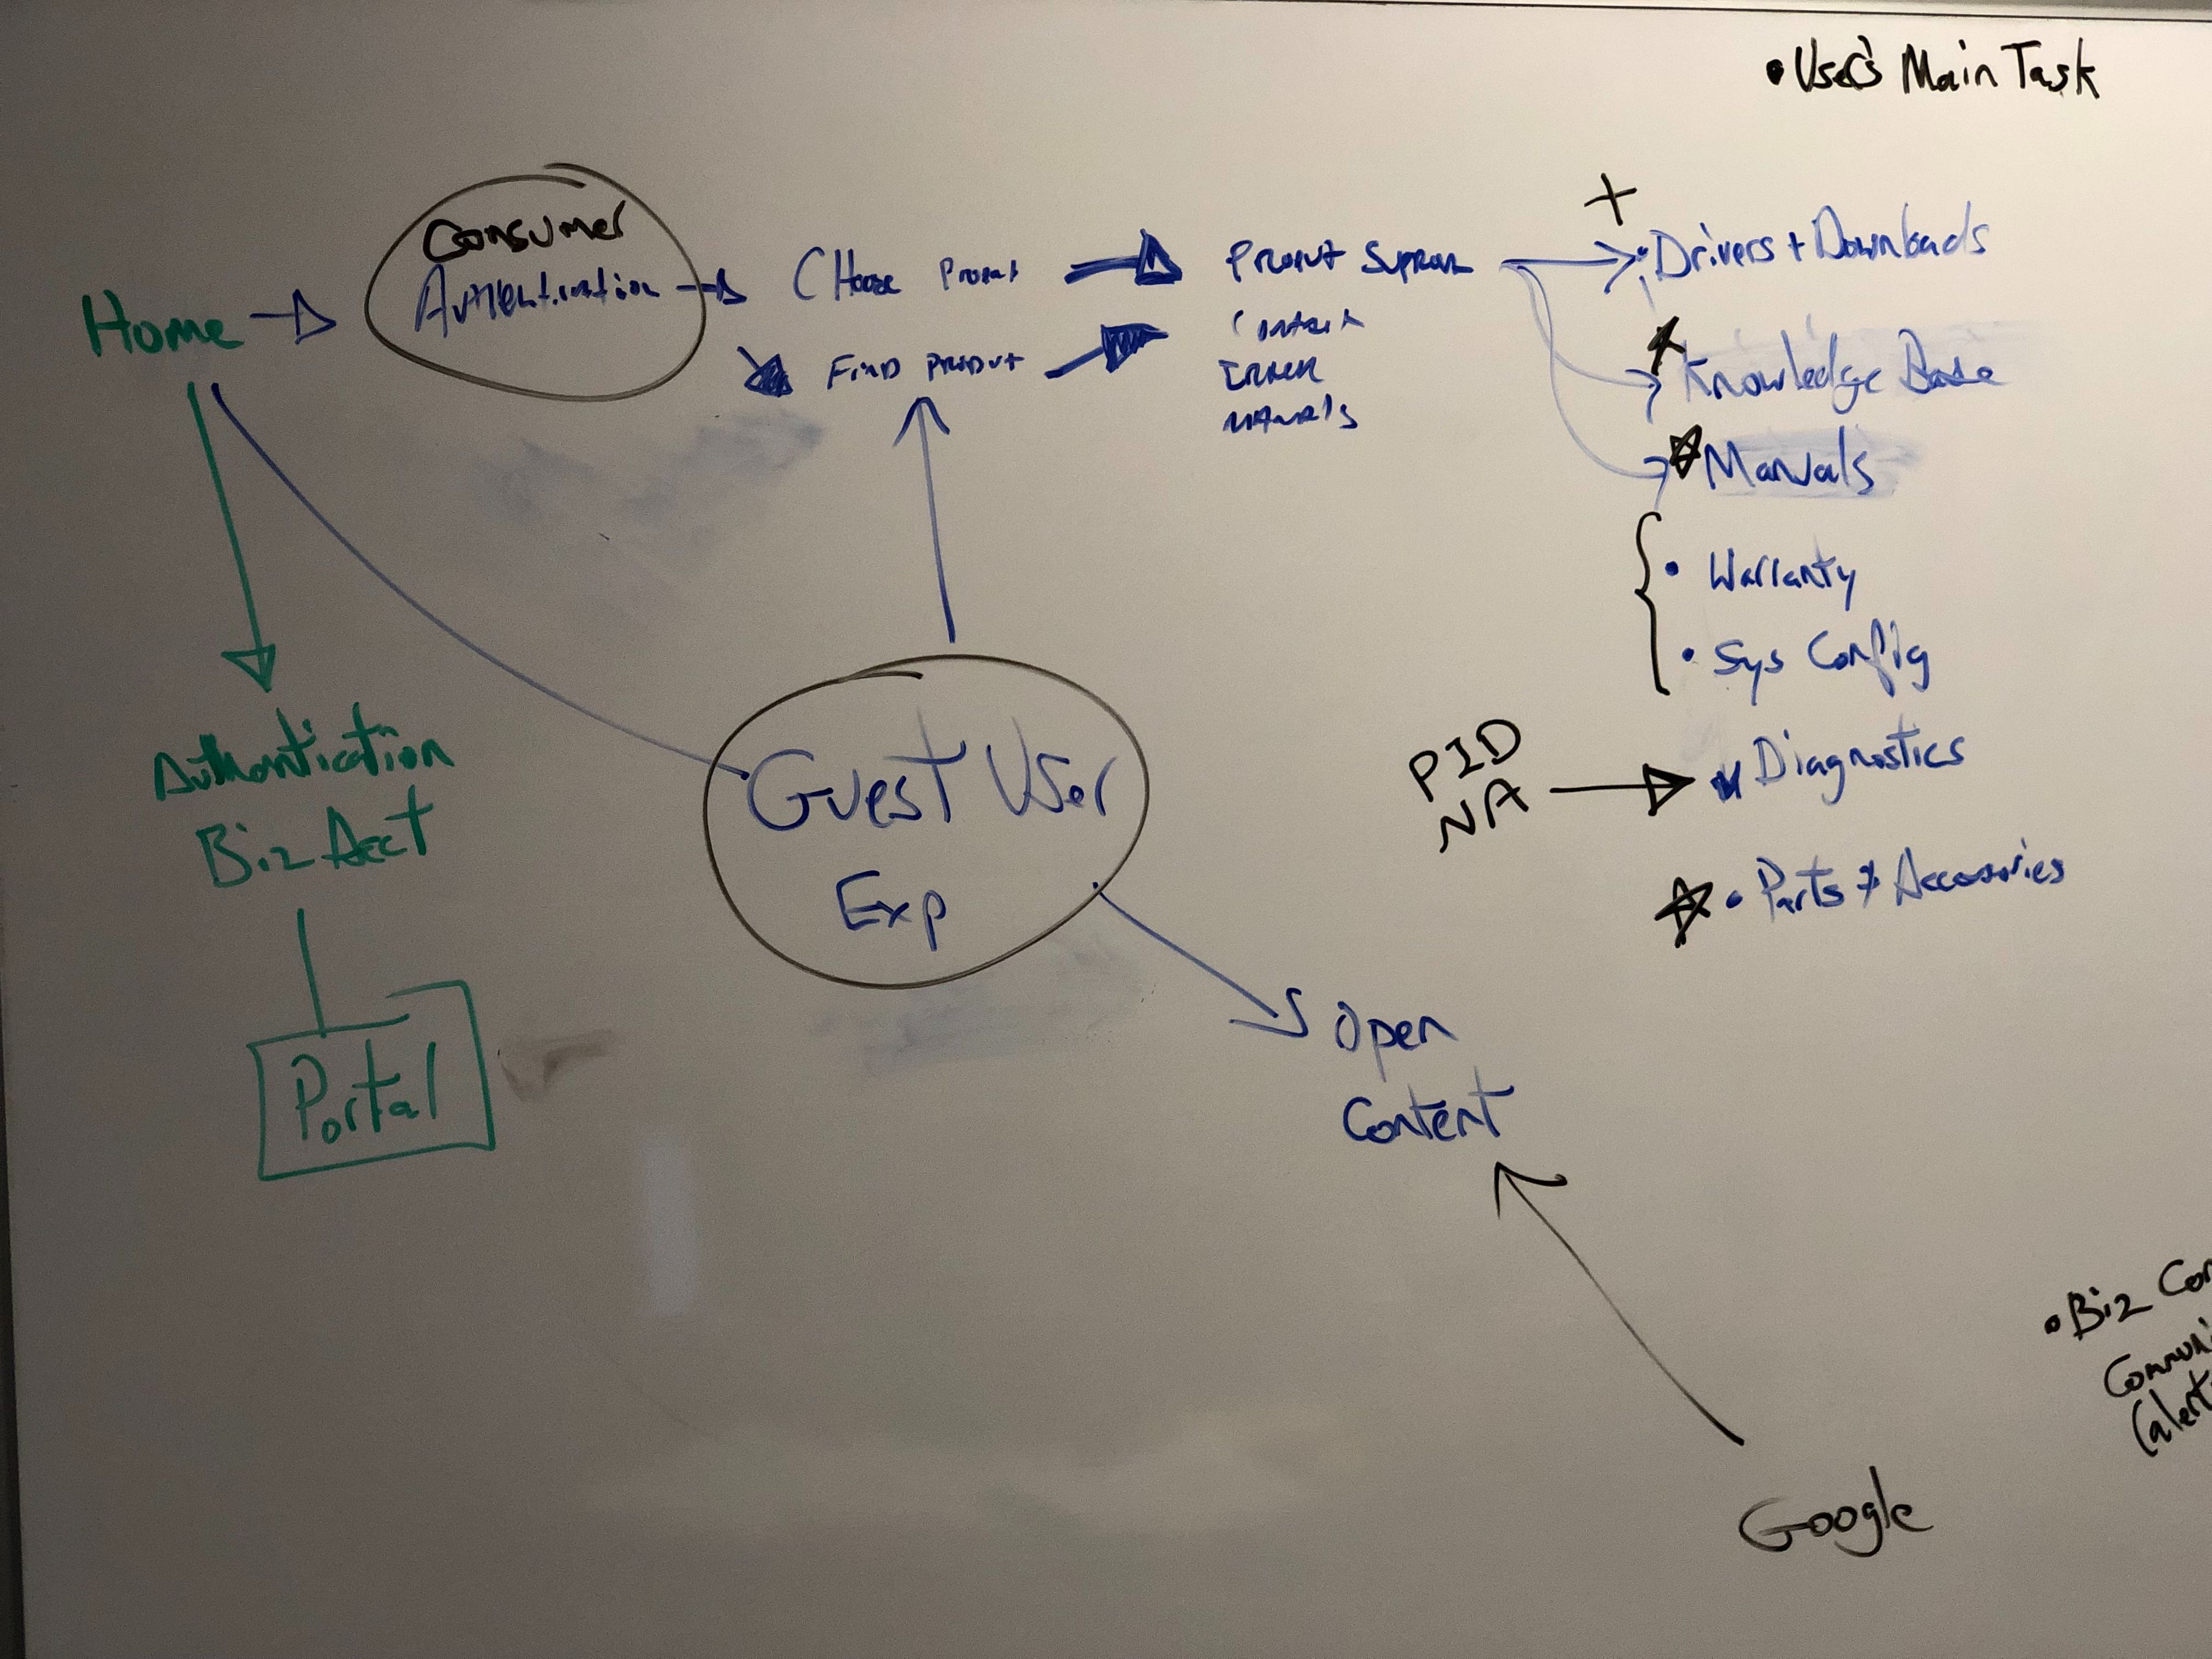 • User's Main Task
Consumer
Authentication
Home
Choose Product
Find Product
Product Support
Manuals
+
• Drivers + Downloads
Knowledge Base
Manuals
• Warranty
• Sys Config
PID
NA
Diagnostics
• Parts & Accessories
Authentication
Biz Acct
Portal
Guest User
Exp
Open
Content
Google
• Biz